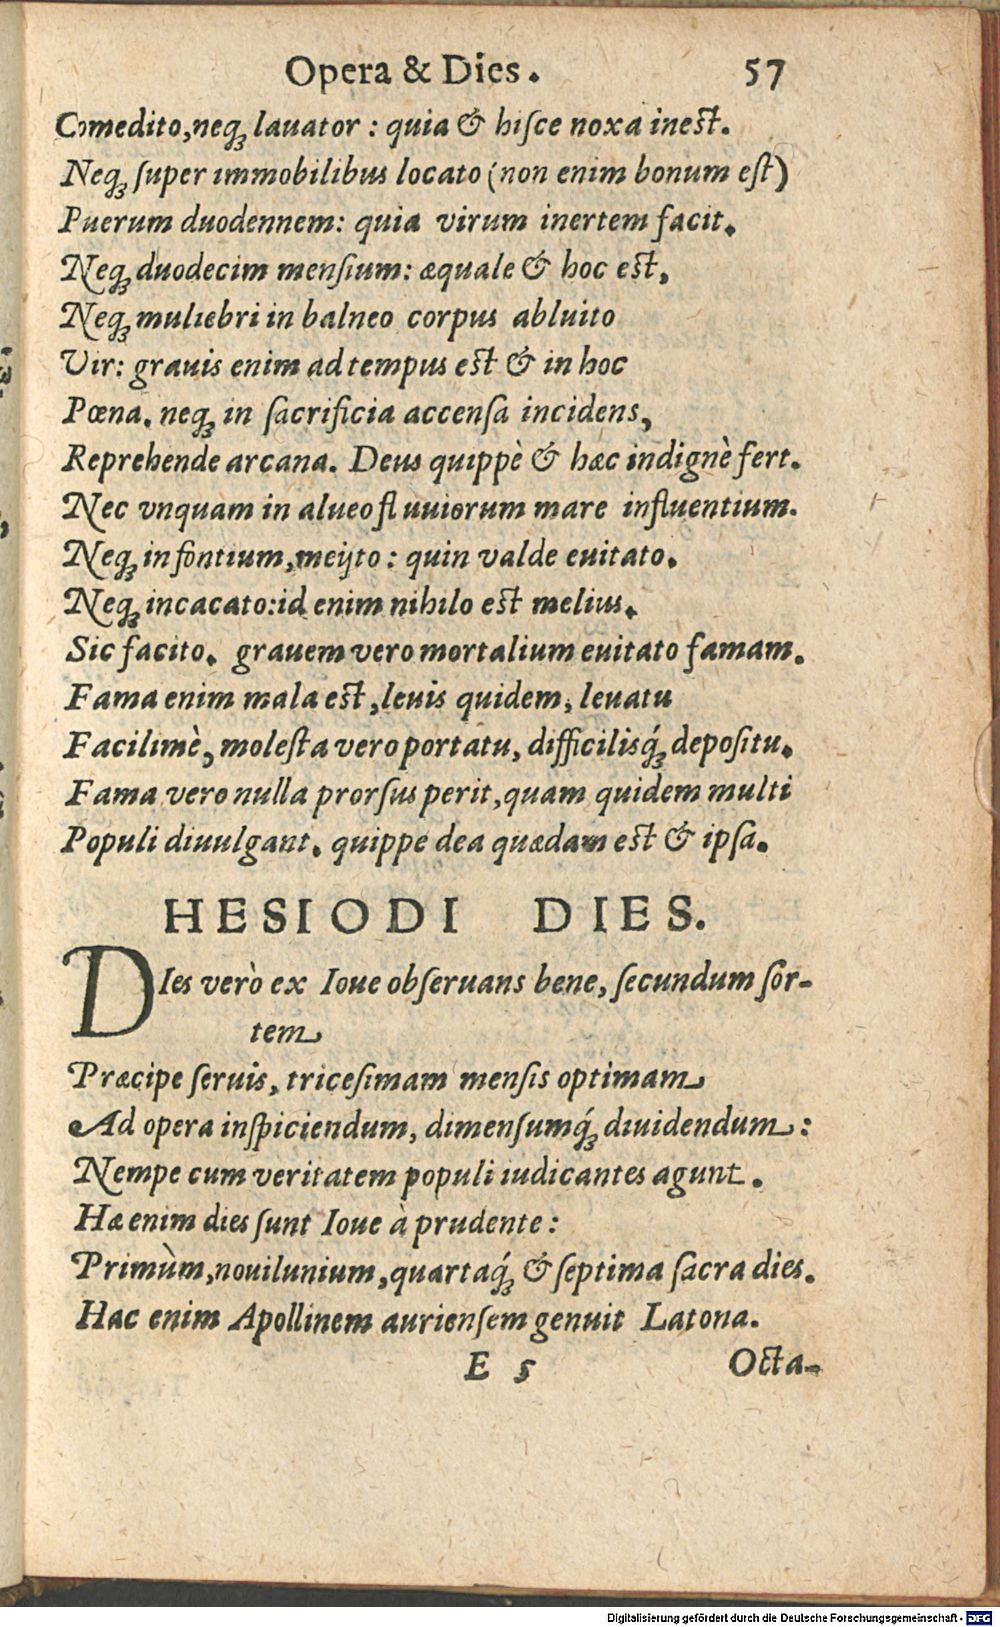 Opera & Dies. 57
Comedito,neqꝫ lauator : quia & hiſce noxa ineſt.
Neqꝫ ſuper immobilibus locato (non enim bonum eſt)
Puerum duodennem: quia virum inertem facit.
Neqꝫ duodecim menſium: æquale & hoc eſt,
Neqꝫ muliebri in balneo corpus abluito
Vir: grauis enim ad tempus eſt & in hoc
Pœna. neqꝫ in ſacrificia accenſa incidens,
Reprehende arcana. Deus quippè & hæc indignè fert.
Nec vnquam in alueo fluuiorum mare influentium.
Neqꝫ in fontium,meijto : quin valde euitato.
Neqꝫ incacato:id enim nihilo eſt melius.
Sic facito. grauem vero mortalium euitato famam.
Fama enim mala eſt,leuis quidem, leuatu
Facilimè, moleſta vero portatu, difficilisq́ꝫ depoſitu.
Fama vero nulla prorſus perit,quam quidem multi
Populi diuulgant. quippe dea quædam eſt & ipſa.
HESIODI DIES.
DIes verò ex Ioue obſeruans bene, ſecundum ſor-
tem
Præcipe ſeruis, triceſimam menſis optimam
Ad opera inſpiciendum, dimenſumq́ꝫ diuidendum :
Nempe cum veritatem populi iudicantes agunt.
Hæ enim dies ſunt Ioue à prudente :
Primùm,nouilunium,quartaq́ꝫ & ſeptima ſacra dies.
Hac enim Apollinem aurienſem genuit Latona.
E 5 Octa-
Digitalisierung gefördert durch die Deutsche Forschungsgemeinschaft - DFG